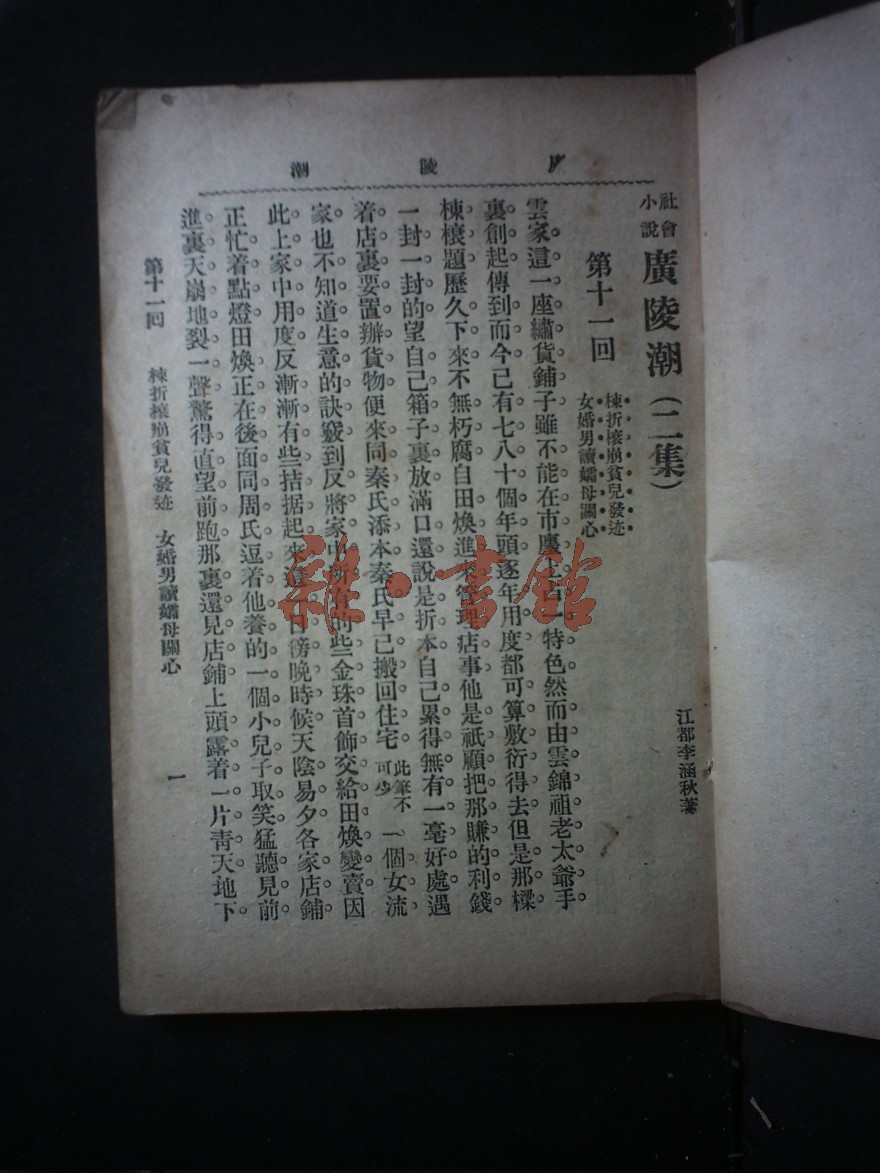 廣陵潮
社會小說 廣陵潮（二集）
江都李涵秋著
第十一回 棟折榱崩貧兒發迹 女婚男讀孀母關心
雲家這一座繡貨鋪子雖不能在市廛上占一特色然而由雲錦祖老太爺手
裏創起傳到而今已有七八十個年頭逐年用度都可算敷衍得去但是那樑
棟榱題歷久下來不無朽腐自田煥進來管理店事他是祇顧把那賺的利錢
一封一封的望自己箱子裏放滿口還說是折本自己累得無有一毫好處遇
着店裏要置辦貨物便來同秦氏添本秦氏早已搬回住宅此筆不可少一個女流
家也不知道生意的訣竅到反將家中所有的些金珠首飾交給田煥變賣因
此上家中用度反漸漸有些拮据起來這一日傍晚時候天陰易夕各家店鋪
正忙着點燈田煥正在後面同周氏逗着他養的一個小兒子取笑猛聽見前
進裏天崩地裂一聲驚得直望前跑那裏還見店鋪上頭露着一片靑天地下
第十一回 棟折榱崩貧兒發迹 女婚男讀孀母關心 一
雜·書館